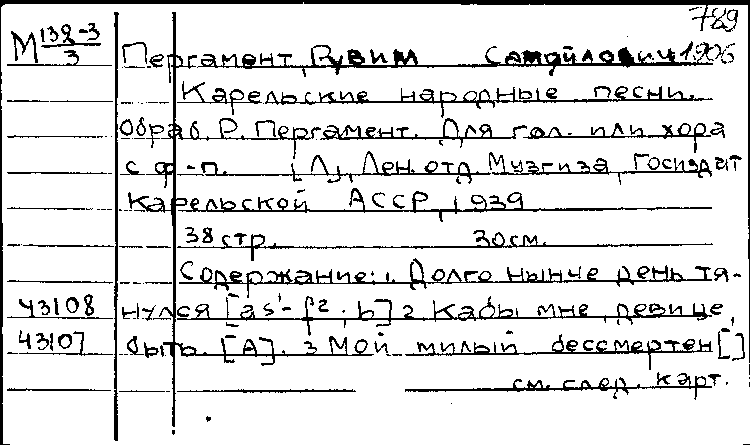 789
М 132-3/3
Пергамент, Рувим Самойлович 1906
Карельские народные песни.
Обраб. Р. Пергамент. Для гол. или хора
с ф-п. [Л], Лен. отд. Музгиза, Госиздат
Карельской АССР, 1939
38 стр. 30 см.
Содержание: 1. Долго нынче день тя-
43108 нулся [as'-f²; b] 2 Кабы мне, девице,
43107 быть. [A]. 3 Мой милый бессмертен []
см. след. карт.